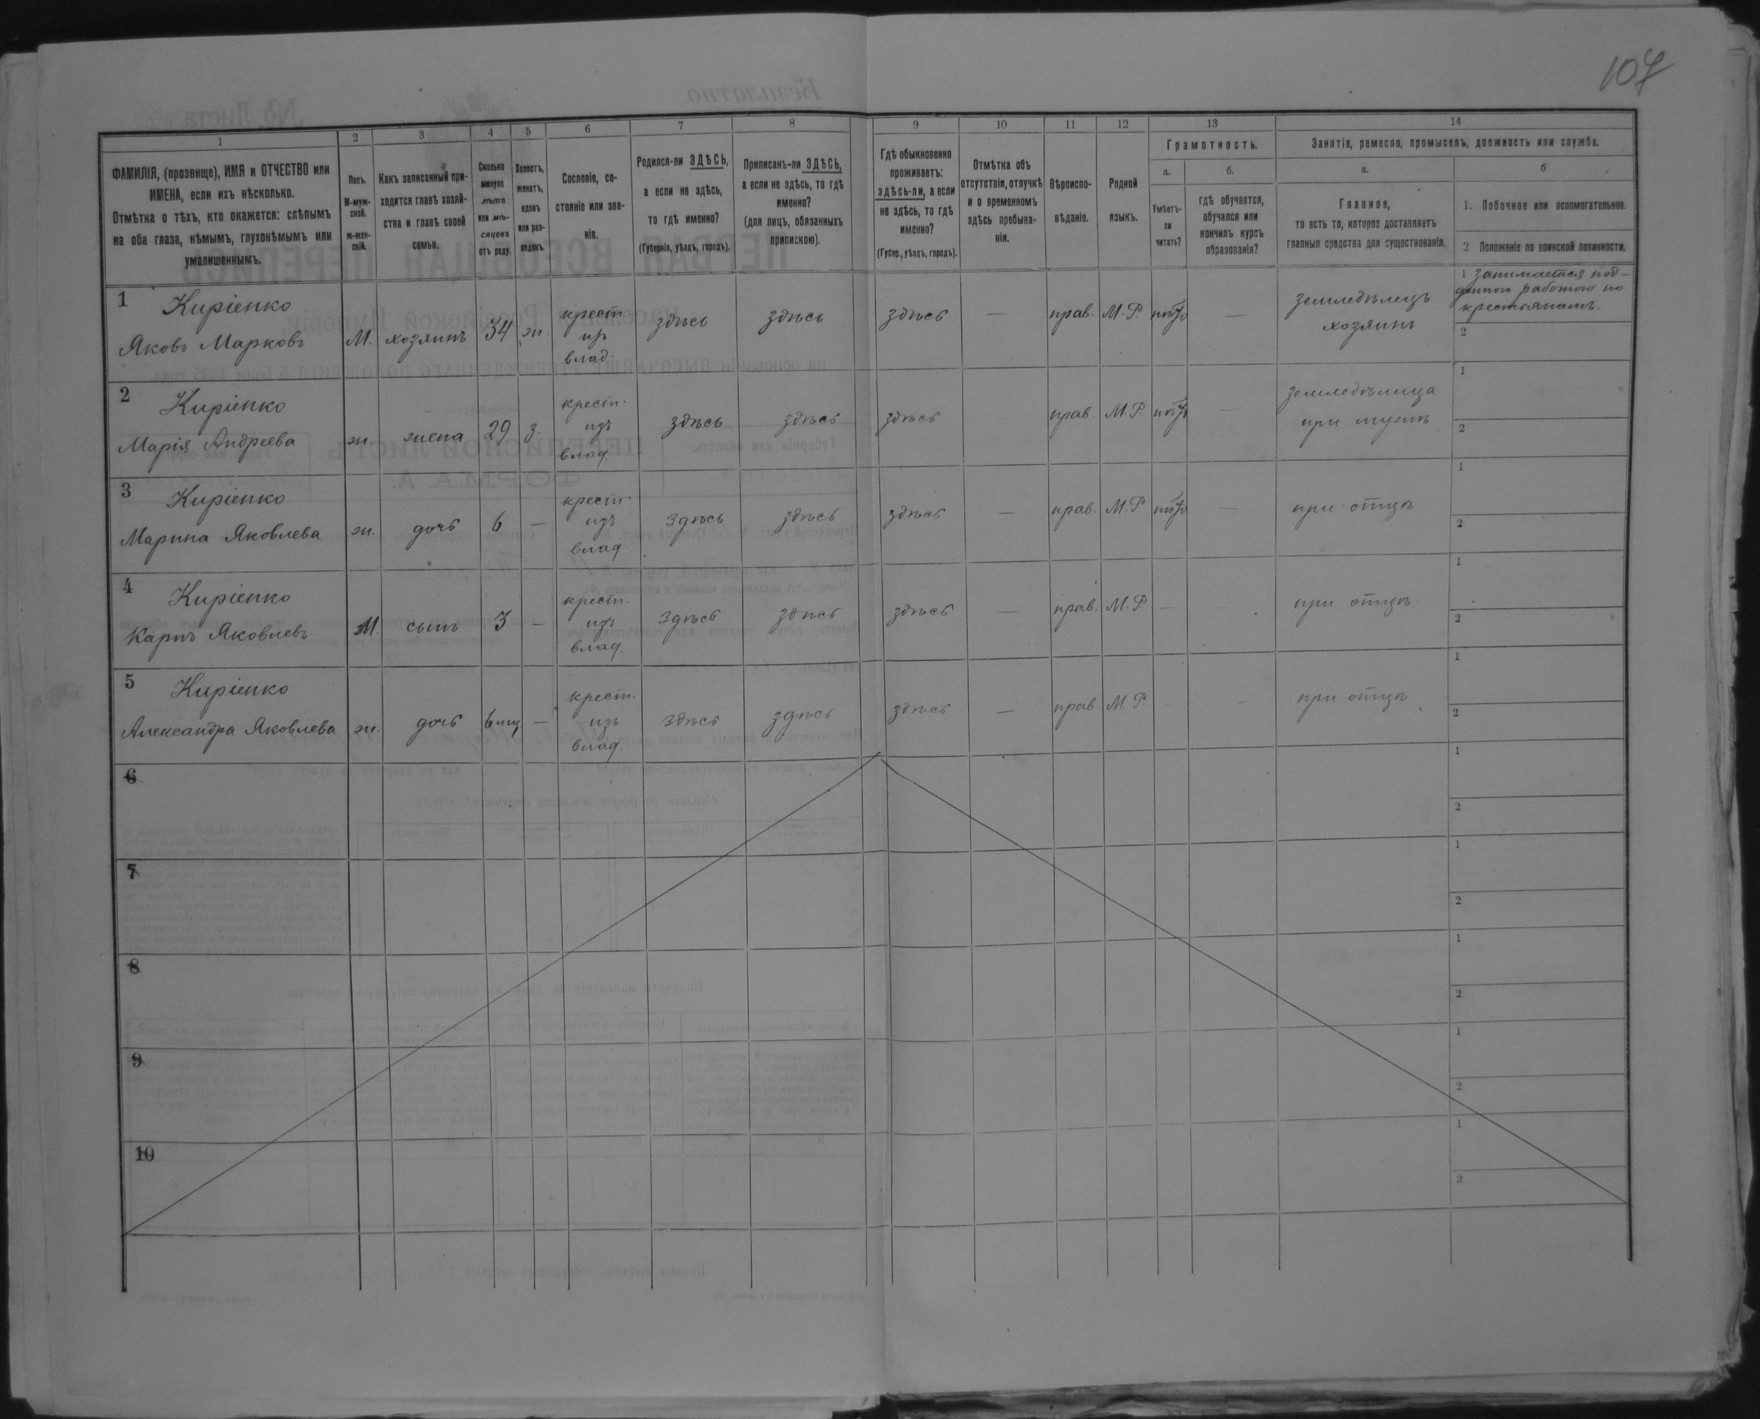 107
1
2
3
4
5
6
7
8
9
10
11
12
13
14
ФАМИЛІЯ, (прозвище), ИМЯ и ОТЧЕСТВО или
ИМЕНА, если ихъ нѣсколько.
Отмѣтка о тѣхъ, кто окажется: слѣпымъ
на оба глаза, нѣмымъ, глухонѣмымъ или
умалишеннымъ.
Полъ.
М-муж-
ской.
ж-жен-
скій.
Какъ записанный при-
ходится главѣ хозяй-
ства и главѣ своей
семьи.
Сколько
минуло
лѣтъ
или мѣ-
сяцевъ
отъ роду.
Холостъ,
женатъ,
вдовъ
или раз-
веденъ.
Сословіе, со-
стояніе или зва-
ніе.
Родился-ли ЗДѢСЬ,
а если не здѣсь,
то гдѣ именно?
(Губернія, уѣздъ, городъ).
Приписанъ-ли ЗДѢСЬ,
а если не здѣсь, то гдѣ
именно?
(для лицъ, обязанныхъ
припискою).
Гдѣ обыкновенно
проживаетъ:
здѣсь-ли, а если
не здѣсь, то гдѣ
именно?
(Губер., уѣздъ, городъ).
Отмѣтка объ
отсутствіи, отлучкѣ
и о временномъ
здѣсь пребыва-
ніи.
Вѣроиспо-
вѣданіе.
Родной
языкъ.
Грамотность.
а.
Умѣетъ-
ли
читать?
б.
гдѣ обучается,
обучался или
кончилъ курсъ
образованія?
Занятіе, ремесло, промыселъ, должность или служба.
а.
Главное,
то есть то, которое доставляетъ
главныя средства для существованія.
б
1. Побочное или вспомогательное.
2 Положеніе по воинской повинности.
1 Киріенко
Яковъ Марковъ М. хозяинъ 34 ж. крест. изъ влад. здѣсь здѣсь здѣсь — прав. М.Р. нѣтъ — земледѣлецъ хозяинъ
1 Занимается под-
денною работою по
крестьянамъ.
2
2 Киріенко
Марія Андреева ж. жена 29 з. крест. изъ влад. здѣсь здѣсь здѣсь прав. М.Р. нѣтъ — земледѣлица при мужѣ
1
2
3 Киріенко
Марина Яковлева ж. дочь 6 — крест. изъ влад здѣсь здѣсь здѣсь — прав. М.Р. нѣтъ — при отцѣ
1
2
4 Киріенко
Карпъ Яковлевъ М. сынъ 3 — крест. изъ влад. здѣсь здѣсь здѣсь — прав. М.Р. — при отцѣ
1
2
5 Киріенко
Александра Яковлева ж. дочь 6 мц — крест. изъ влад. здѣсь здѣсь здѣсь — прав М.Р. — при отцѣ
1
2
6
1
2
7
1
2
8
1
2
9
1
2
10
1
2